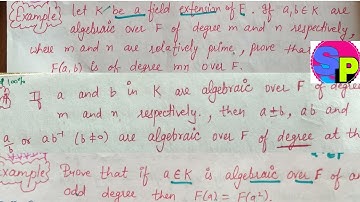 Example Let K be a field extension of E. If a, b ∈ K are
algebraic over F of degree m and n respectively,
where m and n are relatively prime, prove tha
F(a,b) is of degree mn over F.
SP
100%
If a and b in K are algebraic over F of degree
m and n, respectively, then a±b, ab and
a/b or ab⁻¹ (b≠0) are algebraic over F of degree at th
Example Prove that if a∈K is algebraic over F of an
odd degree then F(a) = F(a²).